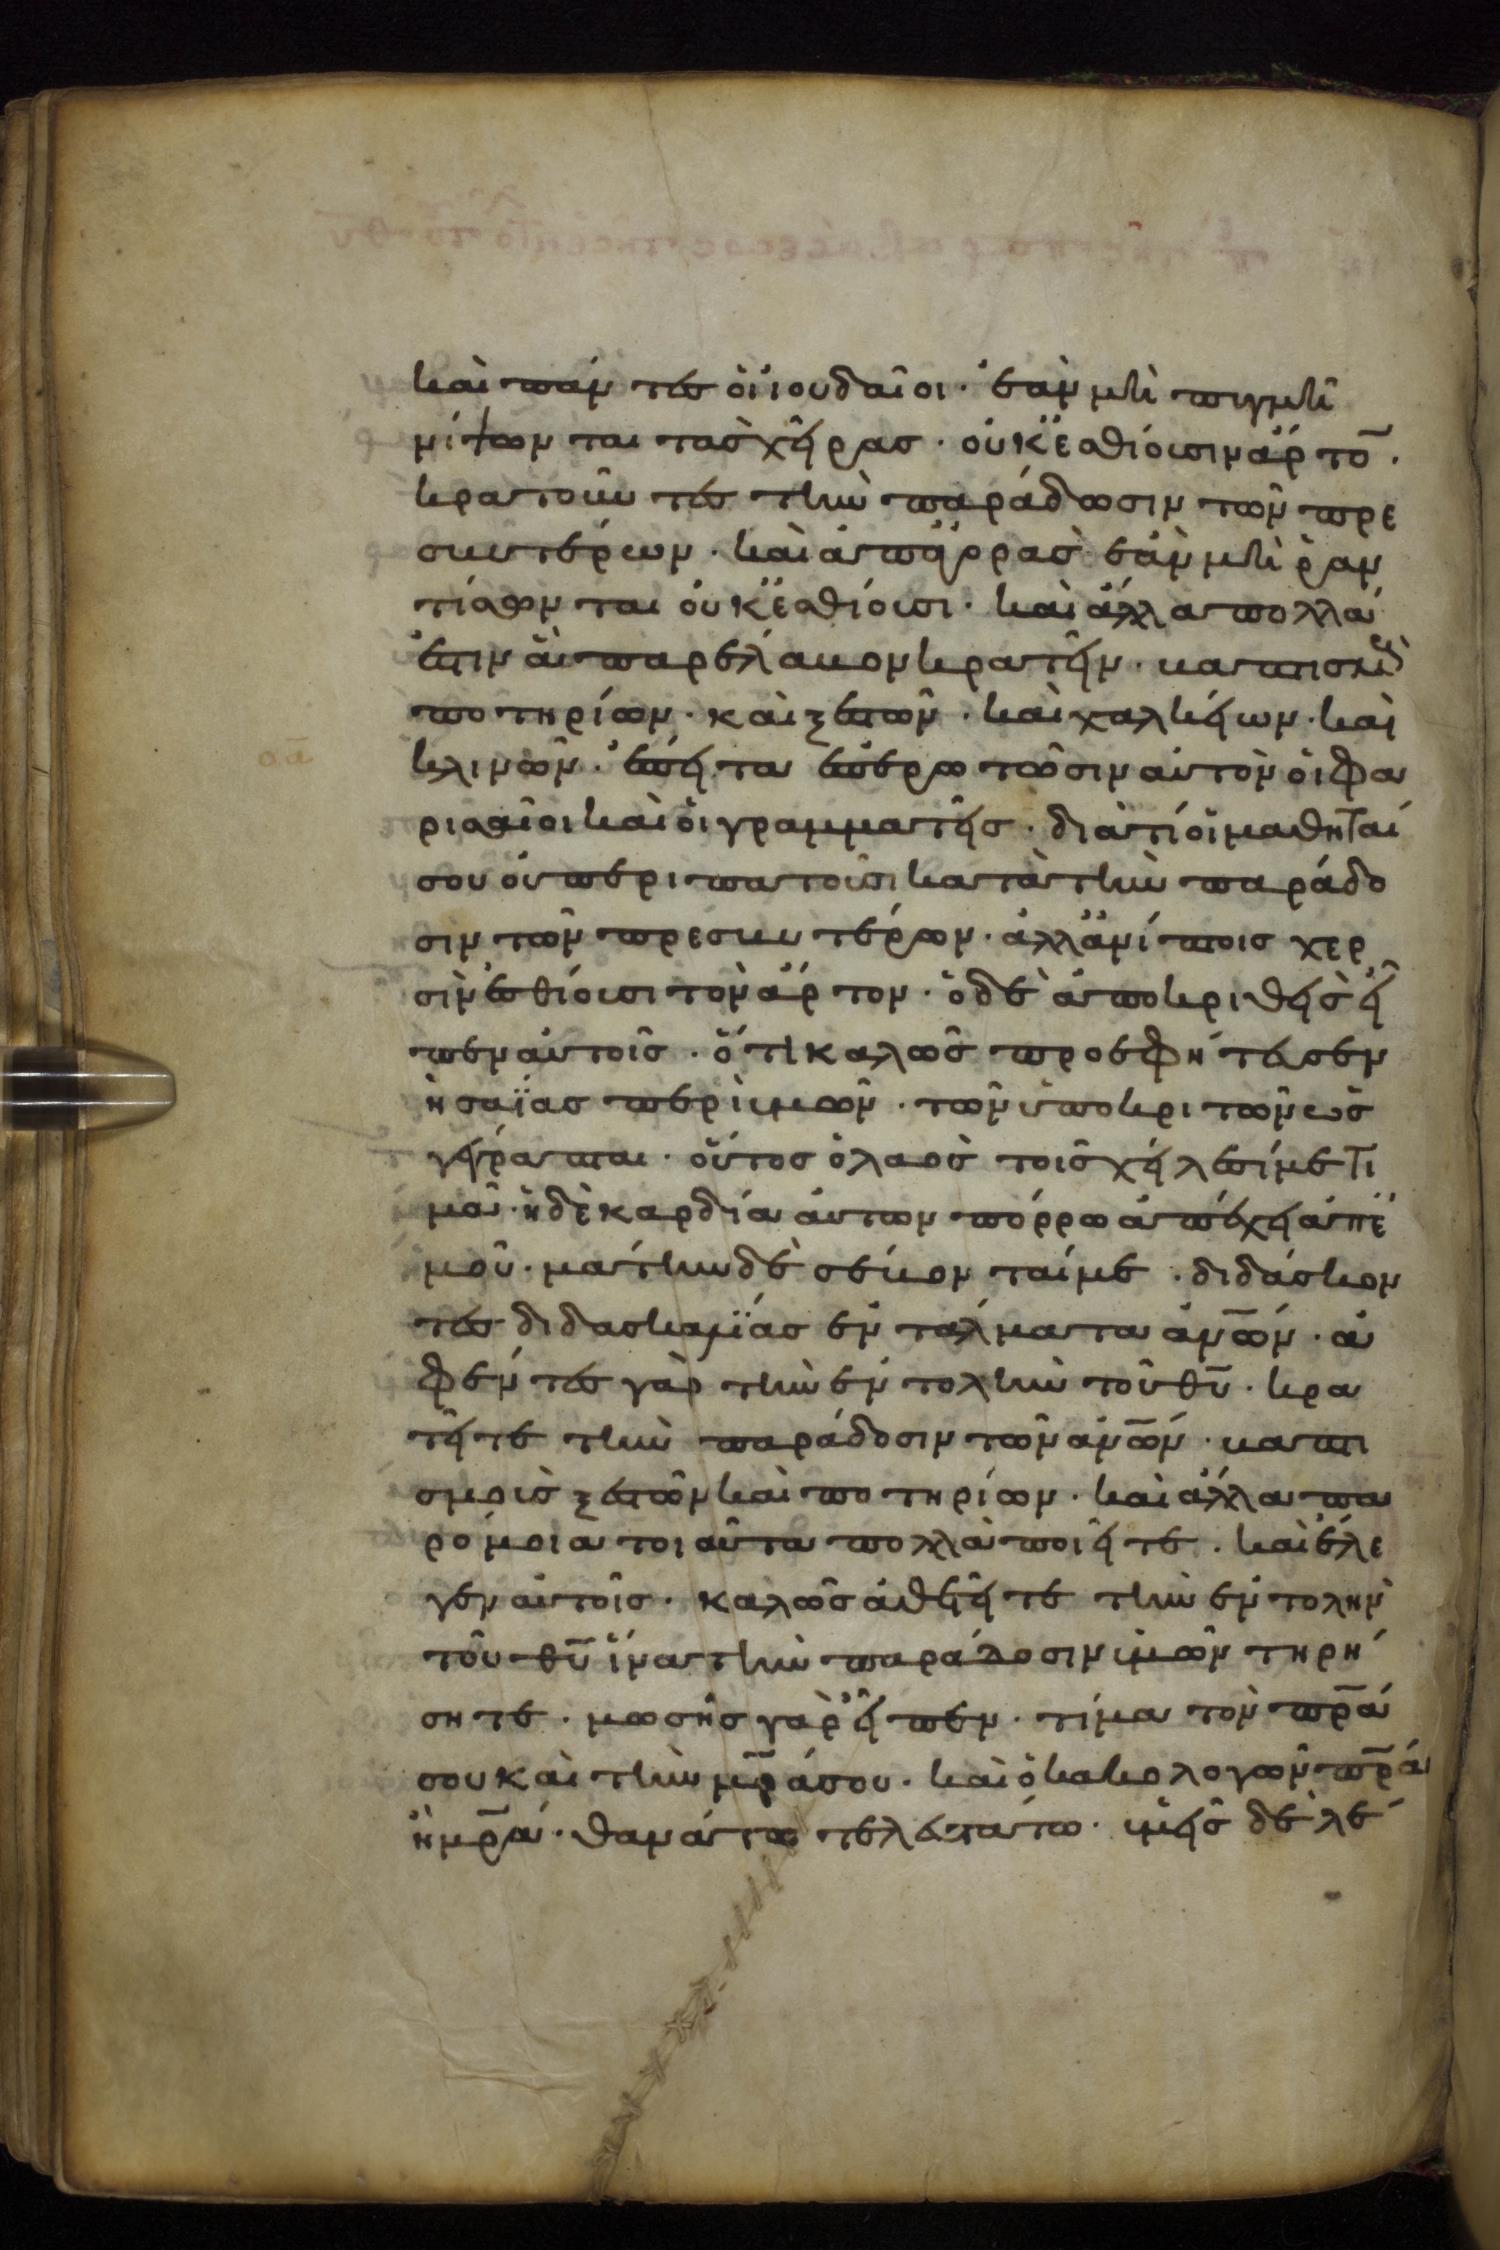 καὶ πάντες ὁι ἰουδαῖοι · ἐὰν μὴ πιγμῆ
νίψωνται τὰς χεῖρας · οὐκ ἐσθίουσιν ἄρτο̅ ·
κρατοῦντες τὴν παράδωσιν τῶν πρε
σβυτέρων · καὶ ἀπ ἀγορρας ἐὰν μὴ βαν
τίσωνται οὐκ ἐσθίουσι · καὶ ἄλλα πολλά
ἐστιν ἃ παρέλαβον κρατεῖν · βαπτισμοὺς
ποτηρίων · καὶ ξεστῶν · καὶ χαλκείων · καὶ
κλινῶν · ἔπειτα ἐπερωτῶσιν αὐτὸν ὁι φα
ρισαῖοι καὶ ὁι γραμματεῖς · διατί ὁι μαθηταί
σου οὐ περιπατοῦσι κατὰ τὴν παράδο
σιν τῶν πρεσβυτέρων · ἀλλ ἀνίπτοις χερ
σὶν ἐσθίουσι τὸν ἄρτον · ὁ δὲ ἀποκριθεὶς εἶ
πεν αὐτοῖς · ὅτι καλῶς προεφήτευσεν
ἡσαΐας περὶ ὑμῶν · τῶν ὑποκριτῶν ὡς
γέγραπται · οὗτος ὁ λαὸς τοῖς χείλεσί με τι
μᾶ · ἡ δὲ καρδία αὐτων πόρρω ἀπέχει ἀπ ἐ
μοῦ · μάτην δὲ σέβονταί με · διδάσκον
τες διδασκαλΐας ἐντάλματα ἀν̅ων · ἀ
φέντες γὰρ τὴν ἐντολὴν τοῦ θυ̅ · κρα
τεῖτε τὴν παράδοσιν τῶν ἀν̅ων · βαπτι
σμοὺς ξεστῶν καὶ ποτηρίων · καὶ ἄλλα πα
ρόμοια τοιαῦτα πολλὰ ποιεῖτε · καὶ ἔλε
γεν αὐτοῖς · καλῶς ἀθετεῖτε τὴν ἐντολὴν
τοῦ θυ̅ ἵνα τὴν παράδοσιν ὑμῶν τηρή
σητε · μωσῆς γὰρ εἶπεν · τίμα τὸν πρ̅α
σου καὶ τὴν μρ̅α σου · καὶ ὁ κακολογῶν πρ̅α
ἢ μρ̅α · θανάτω τελευτάτω · ὑμεῖς δὲ λέ
οα̅